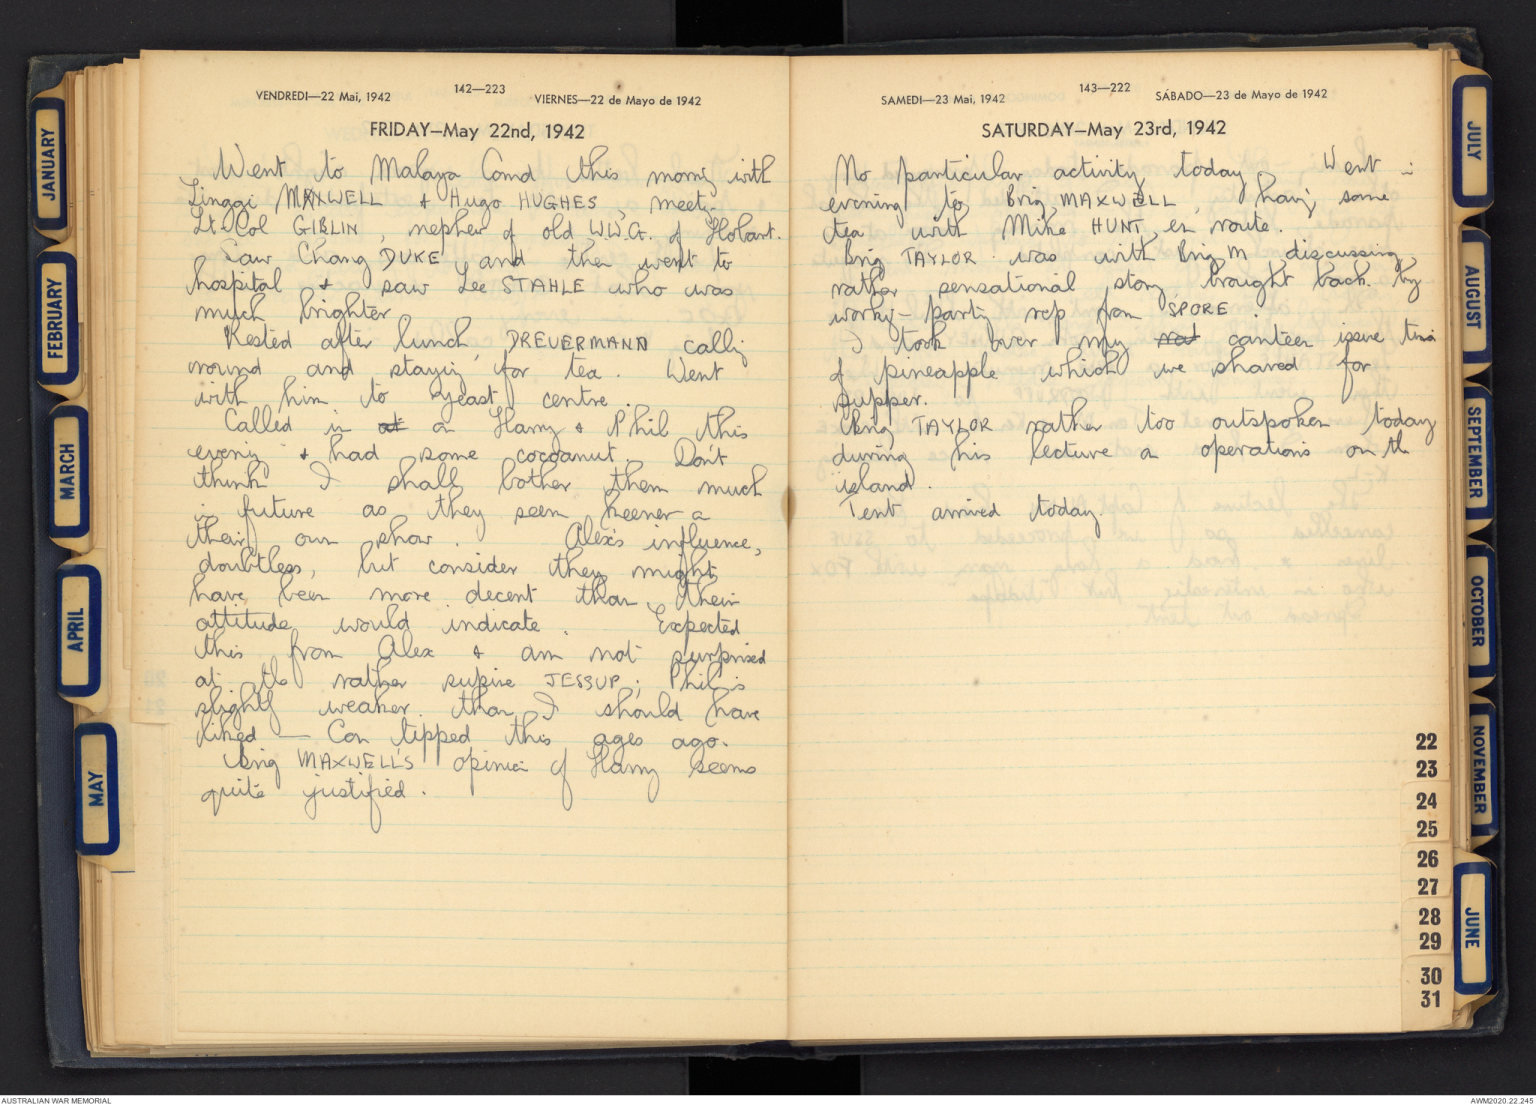 VENDREDI—22 Mai, 1942
142—223
VIERNES—22 de Mayo de 1942
FRIDAY—May 22nd, 1942
Went to Malaya Comd this morng with
Linggi MAXWELL & Hugo HUGHES, meetg
Lt-Col GIBLIN, nephew of old W.W.G. of Hobart.
Saw Chang DUKE, and then went to
hospital & saw Lee STAHLE who was
much brighter.
Rested after lunch, DREVERMANN callg
round and staying for tea. Went
with him to yeast centre.
Called in at on Harry & Phil this
eveng & had some cocoanut. Don't
think I shall bother them much
in future as they seem keener on
their own show. Alex's influence,
doubtless, but consider they might
have been more decent than their
attitude would indicate. Expected
this from Alex & am not surprised
at the rather supine JESSUP; Phil is
slightly weaker than I should have
liked — Con tipped this ages ago.
Brig MAXWELL'S opinion of Harry seems
quite justified.
SAMEDI—23 Mai, 1942
143—222
SÁBADO—23 de Mayo de 1942
SATURDAY—May 23rd, 1942
No particular activity today. Went in
evening to Brig MAXWELL, havg some
tea with Mike HUNT, en route.
Brig TAYLOR was with Brig M, discussing
rather sensational story brought back by
workg-party rep from SPORE.
I took over my rat canteen issue tin
of pineapple which we shared for
supper.
Brig TAYLOR rather too outspoken today
during his lecture on operations on th
island.
Tent arrived today.
JANUARY
FEBRUARY
MARCH
APRIL
MAY
JULY
AUGUST
SEPTEMBER
OCTOBER
NOVEMBER
JUNE
22
23
24
25
26
27
28
29
30
31
AUSTRALIAN WAR MEMORIAL
AWM2020.22.245